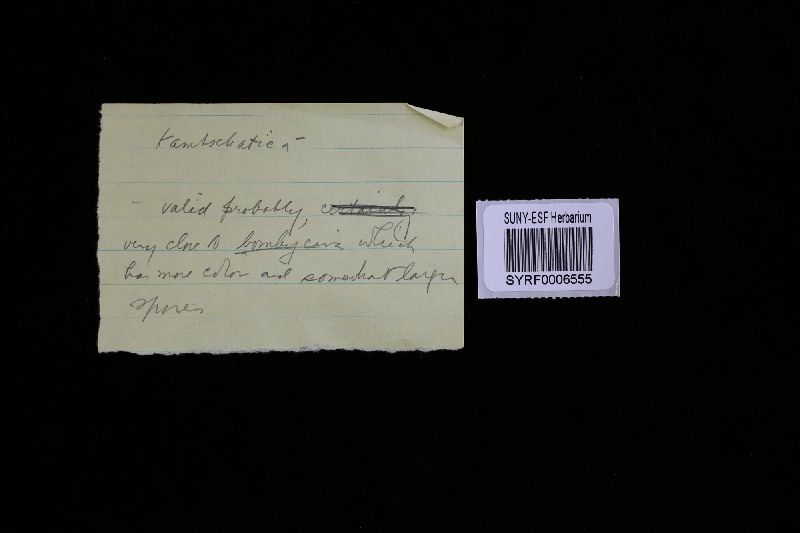 Kamtschatica -
- valid probably, certainly
very close to bombycina which
has more color and somewhat larger
spores
SUNY-ESF Herbarium
SYRF0006555